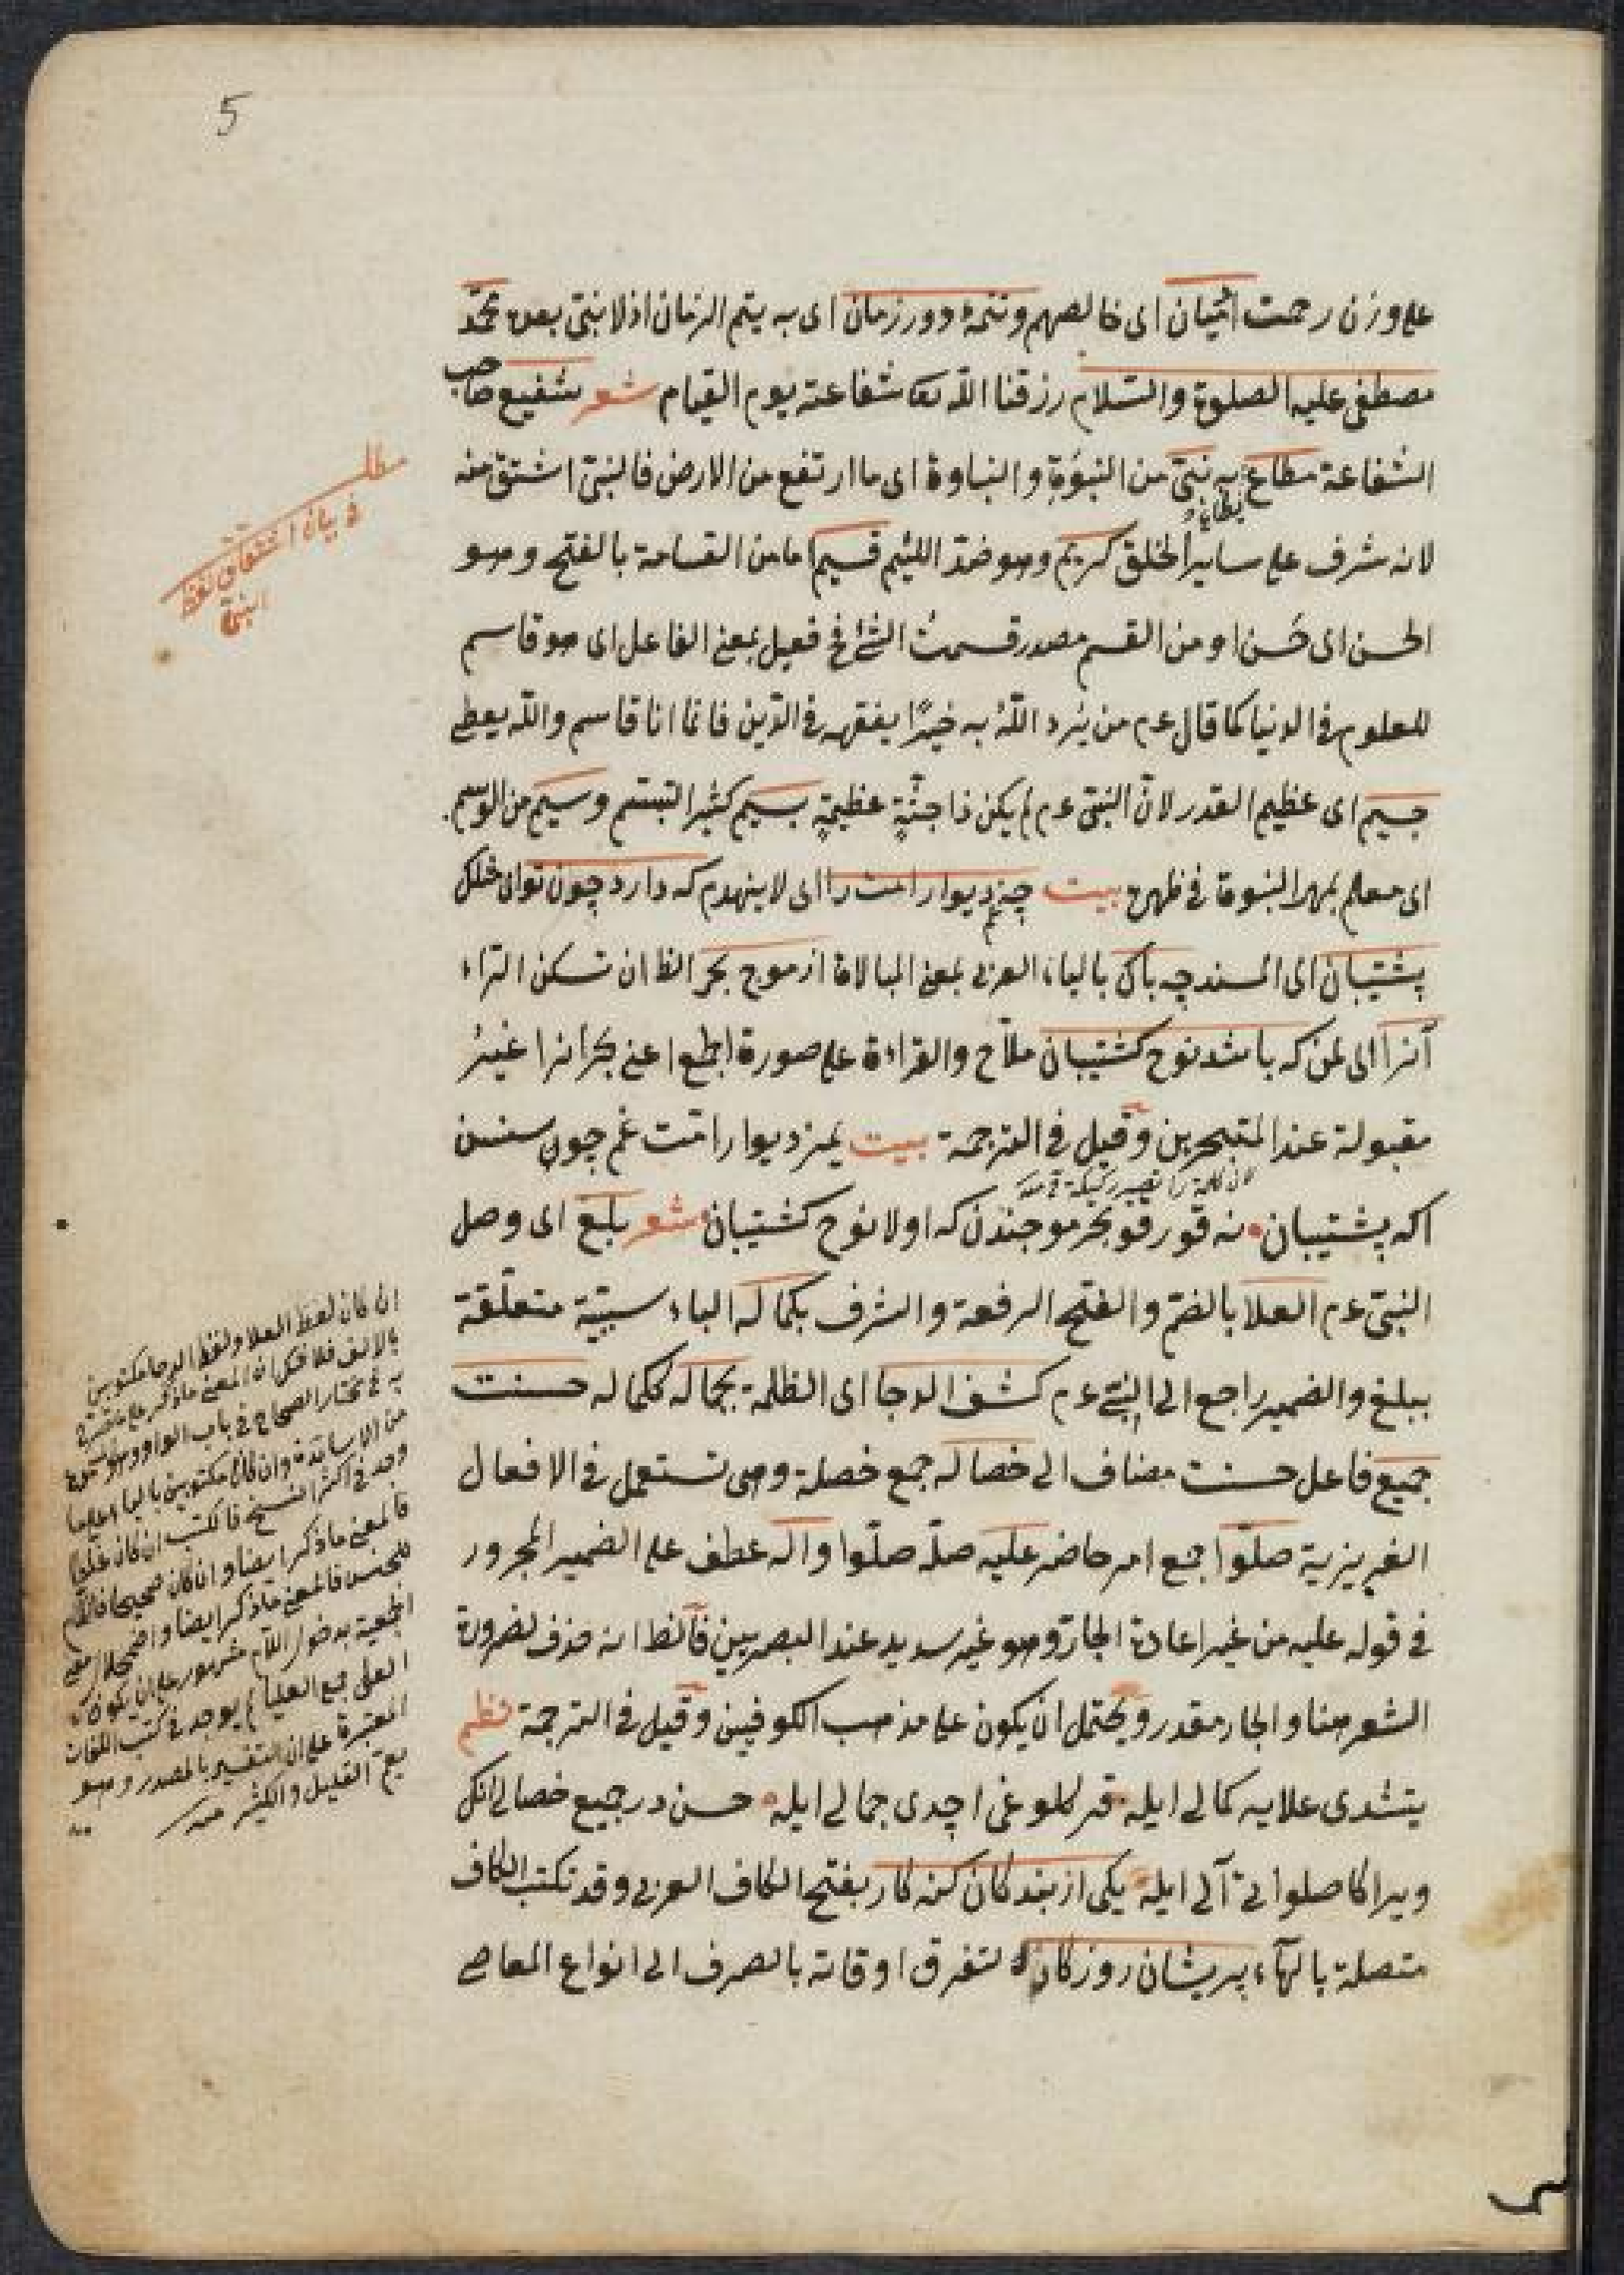 5
على وزن رحمت آدميان اى خالصهم وتتمهٔ دور زمان اى به يتم الزمان اذ لا نبى بعده محمّد
مصطفى عليه الصلوة والسّلام رزقنا اللّه تعا شفاعته يوم القيام شعر شفيع صاحب
الشفاعة مطاع به نبىّ من النبوّة والنباوة اى ما ارتفع من الارض فالنبىّ اشتق منه
لانه شرف على ساير الخلق كريم وهو ضدّ اللئيم قسيم اما من القسامة بالفتح وهو
الحسن اى حَسن او من القسم مصدر قسمتُ الشئ فخ فعيل بمعنى الفاعل اى هو قاسم
للعلوم فى الدنيا كما قال عم من يُرد اللّهُ به خيرًا يفقهه فى الدّين فانما انا قاسم واللّه يعطى
جسيم اى عظيم القدر لانّ النبىّ عم لم يكن ذا جثّةٍ عظيمةٍ بسيم كثير التبسّم وسيم من الوسم
اى معلم بمهر النبوة فى ظهره بيت چه غم ديوار امت را اى لا ينهدم كه دارد چون تو اى خلك
پشتيبان اى المسند چه باك بالباء العربى بمعنى المبالاة از موج بحر الظ ان تسكن الراء
آنرا اى لمن كه باشد نوح كشتيبان ملّاح والقراءة على صورة اطع اعنى بحر آنرا غيرُ
مقبولة عند المتبحرين وقيل فى الترجمة بيت يمز ديوار امّت غم چون سنسن
لان كلمة را تصير ركيكة فى منه
اكه پشتيبان نه قورقو بحر موجندن كه اولا نوح كشتيبان شعر بلغ اى وصل
النبىّ عم العلا بالضمّ والفتح الرفعة والشرف بكماله الباء سببيّة متعلّقة
ببلغ والضمير راجع الى النبىّ عم كشف الدجا اى الظلمة بجماله ككماله حسنت
جميع فاعل حسنت مضاف الى خصاله جمع خصلة وهى تستعمل فى الافعال
الغريزية صلّوا جمع امر حاضر عليه صلّه صلّوا وآله عطف على الضمير المجرور
فى قوله عليه من غير اعادة الجارّ وهو غير سديد عند البصريين فالظ انه حذف لضرورة
الشعر هنا والجار مقدر ويحتمل ان يكون على مذهب الكوفيين وقيل فى الترجمة نظم
يتشدى علايه كمالى ايله قرالوغى اچدى جمالى ايله حسن در جميع خصالى انك
ويرا كا صلوا لى آلى ايله يكى از بندكان كنه كار بفتح الكاف العربى وقد تكتب الكاف
متصلة بالهآء پريشان روزكار لتفرق اوقاته بالصرف الى انواع المعاصى
مطلب
فى بيان اشتقاق لفظ
النبىّ
ان كان لفظ العلا ولفظ الدجا مكتوبين
بالالف فلا شك ان المعنى ما ذكر على ما صرّح
به فى مختار الصحاح فى باب الواو
من الاساتذة وان كان مكتوبين بالياء على ما
وجد فى اكثر النسخ فالكتب ان كان غلطا
فالمعنى ما ذكر ايضا وان كان صحيحا فاللام
للجنس فالمعنى ما ذكر ايضا واضمحلال معنى
الجمعية بدخول اللّام مشهور على ان يكون
العلى جمع العليا لم يوجد فى كتب اللغات
المعتبرة على ان التفسير بالمصدر وهو
يعم القليل والكثير منه